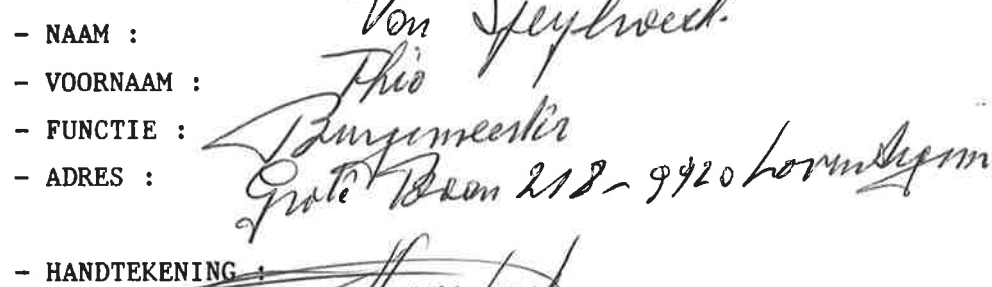 - NAAM : Van Speybroeck.
- VOORNAAM : Theo
- FUNCTIE : Burgemeester
- ADRES : Grote Baan 218 - 9920 Lovendegem
- HANDTEKENING :